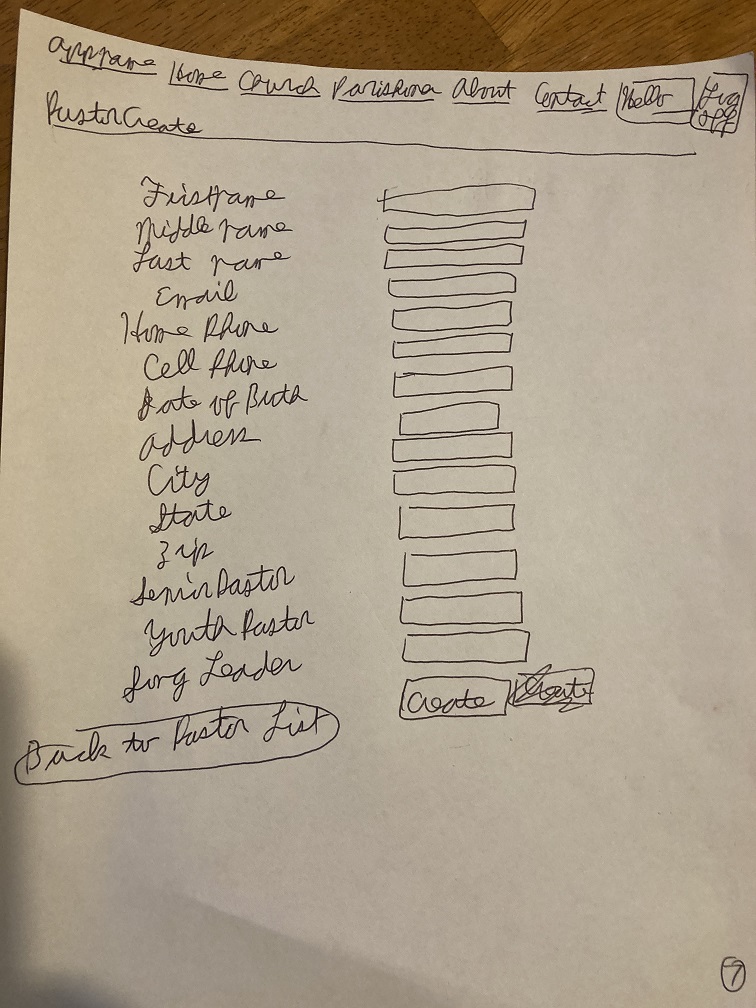 appname Home Church Parishoner About Contact Hello Log off
PastorCreate
Firstname
Middle name
Last name
Email
Home Phone
Cell Phone
Date of Birth
address
City
State
Zip
SeniorPastor
Youth Pastor
Song Leader
Create
Back to Pastor List
7